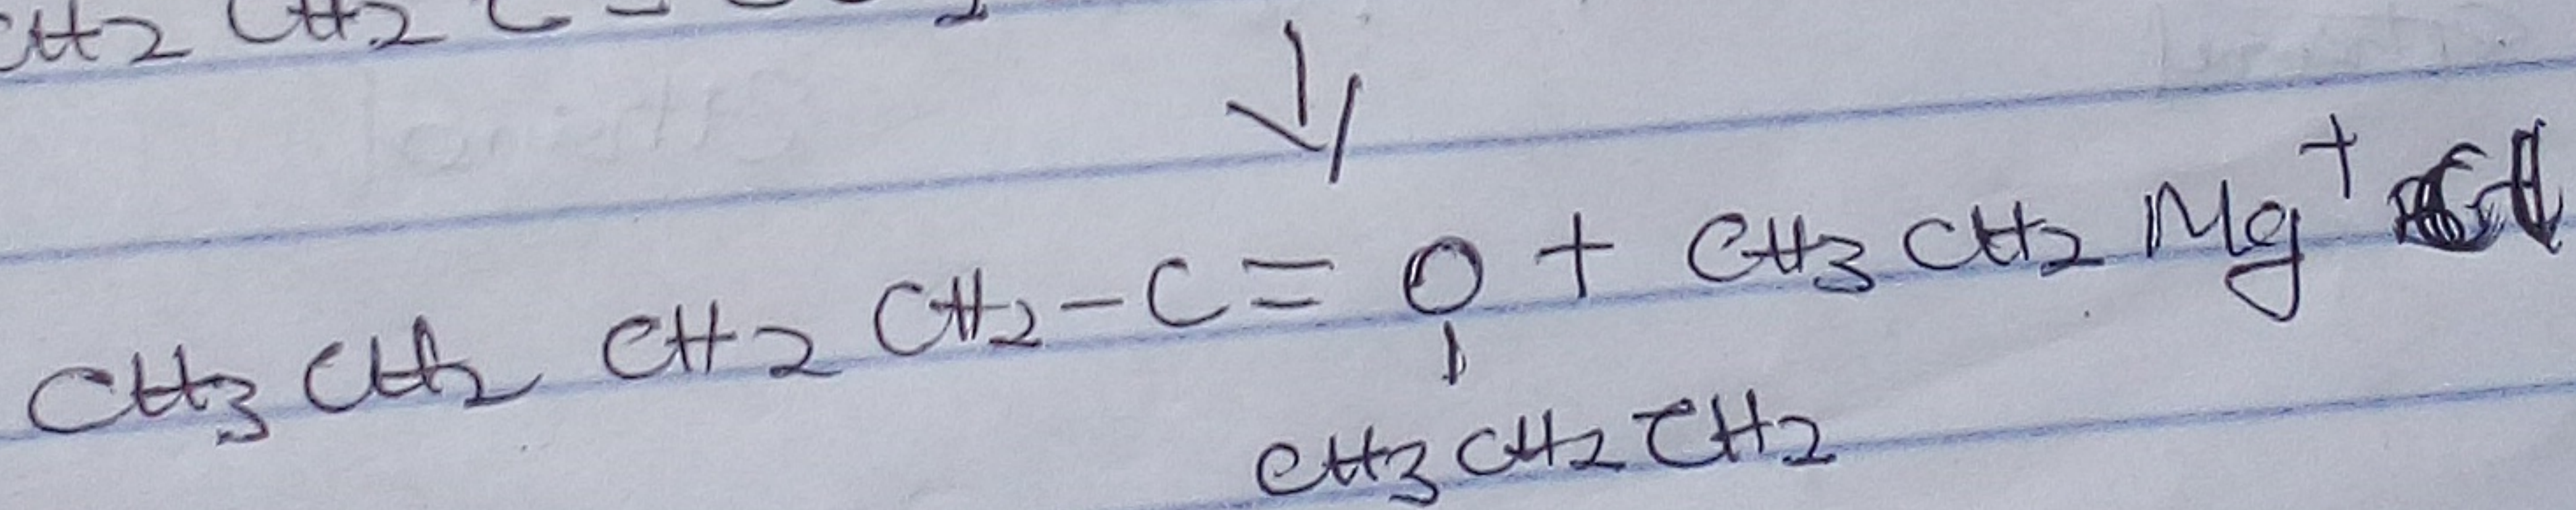 CH2 CH2 C
CH3 CH2 CH2 CH2 - C = O + CH3 CH2 Mg+
CH3 CH2 CH2